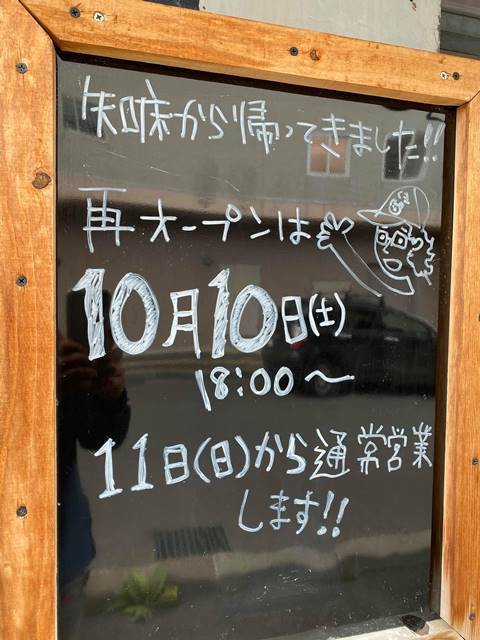 知味から帰ってきました!!
再オープンは
10月10日(土)
18:00〜
11日(日)から通常営業
します!!